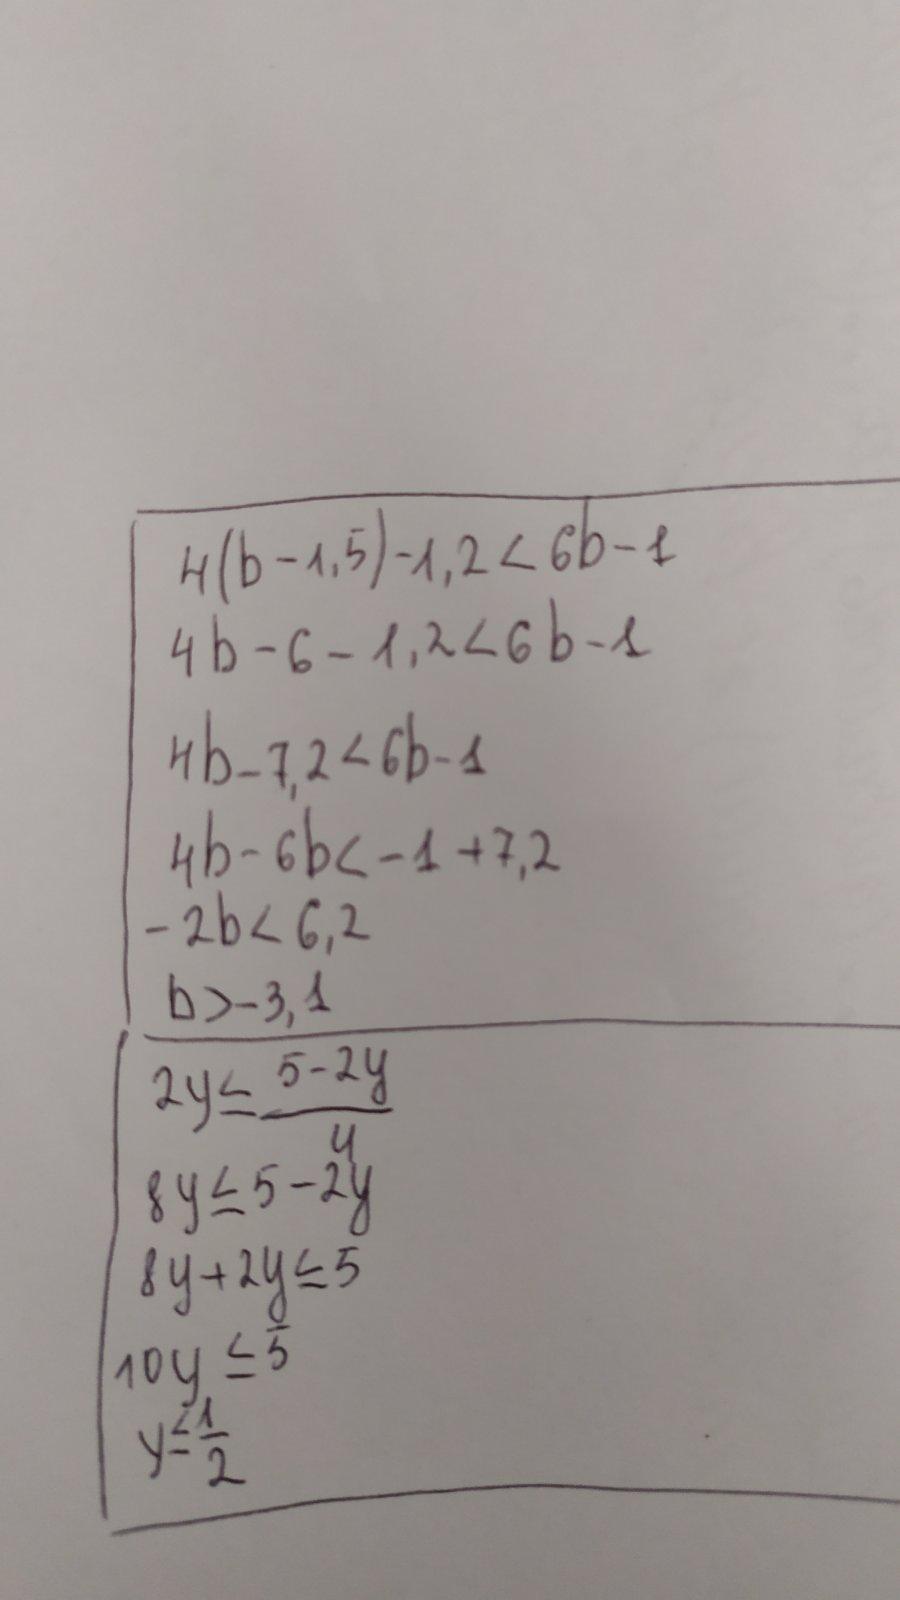 4(b-1,5)-1,2<6b-1
4b-6-1,2<6b-1
4b-7,2<6b-1
4b-6b<-1+7,2
-2b<6,2
b>-3,1
2y≤\frac{5-2y}{4}
8y≤5-2y
8y+2y≤5
10y≤5
y≤\frac{1}{2}